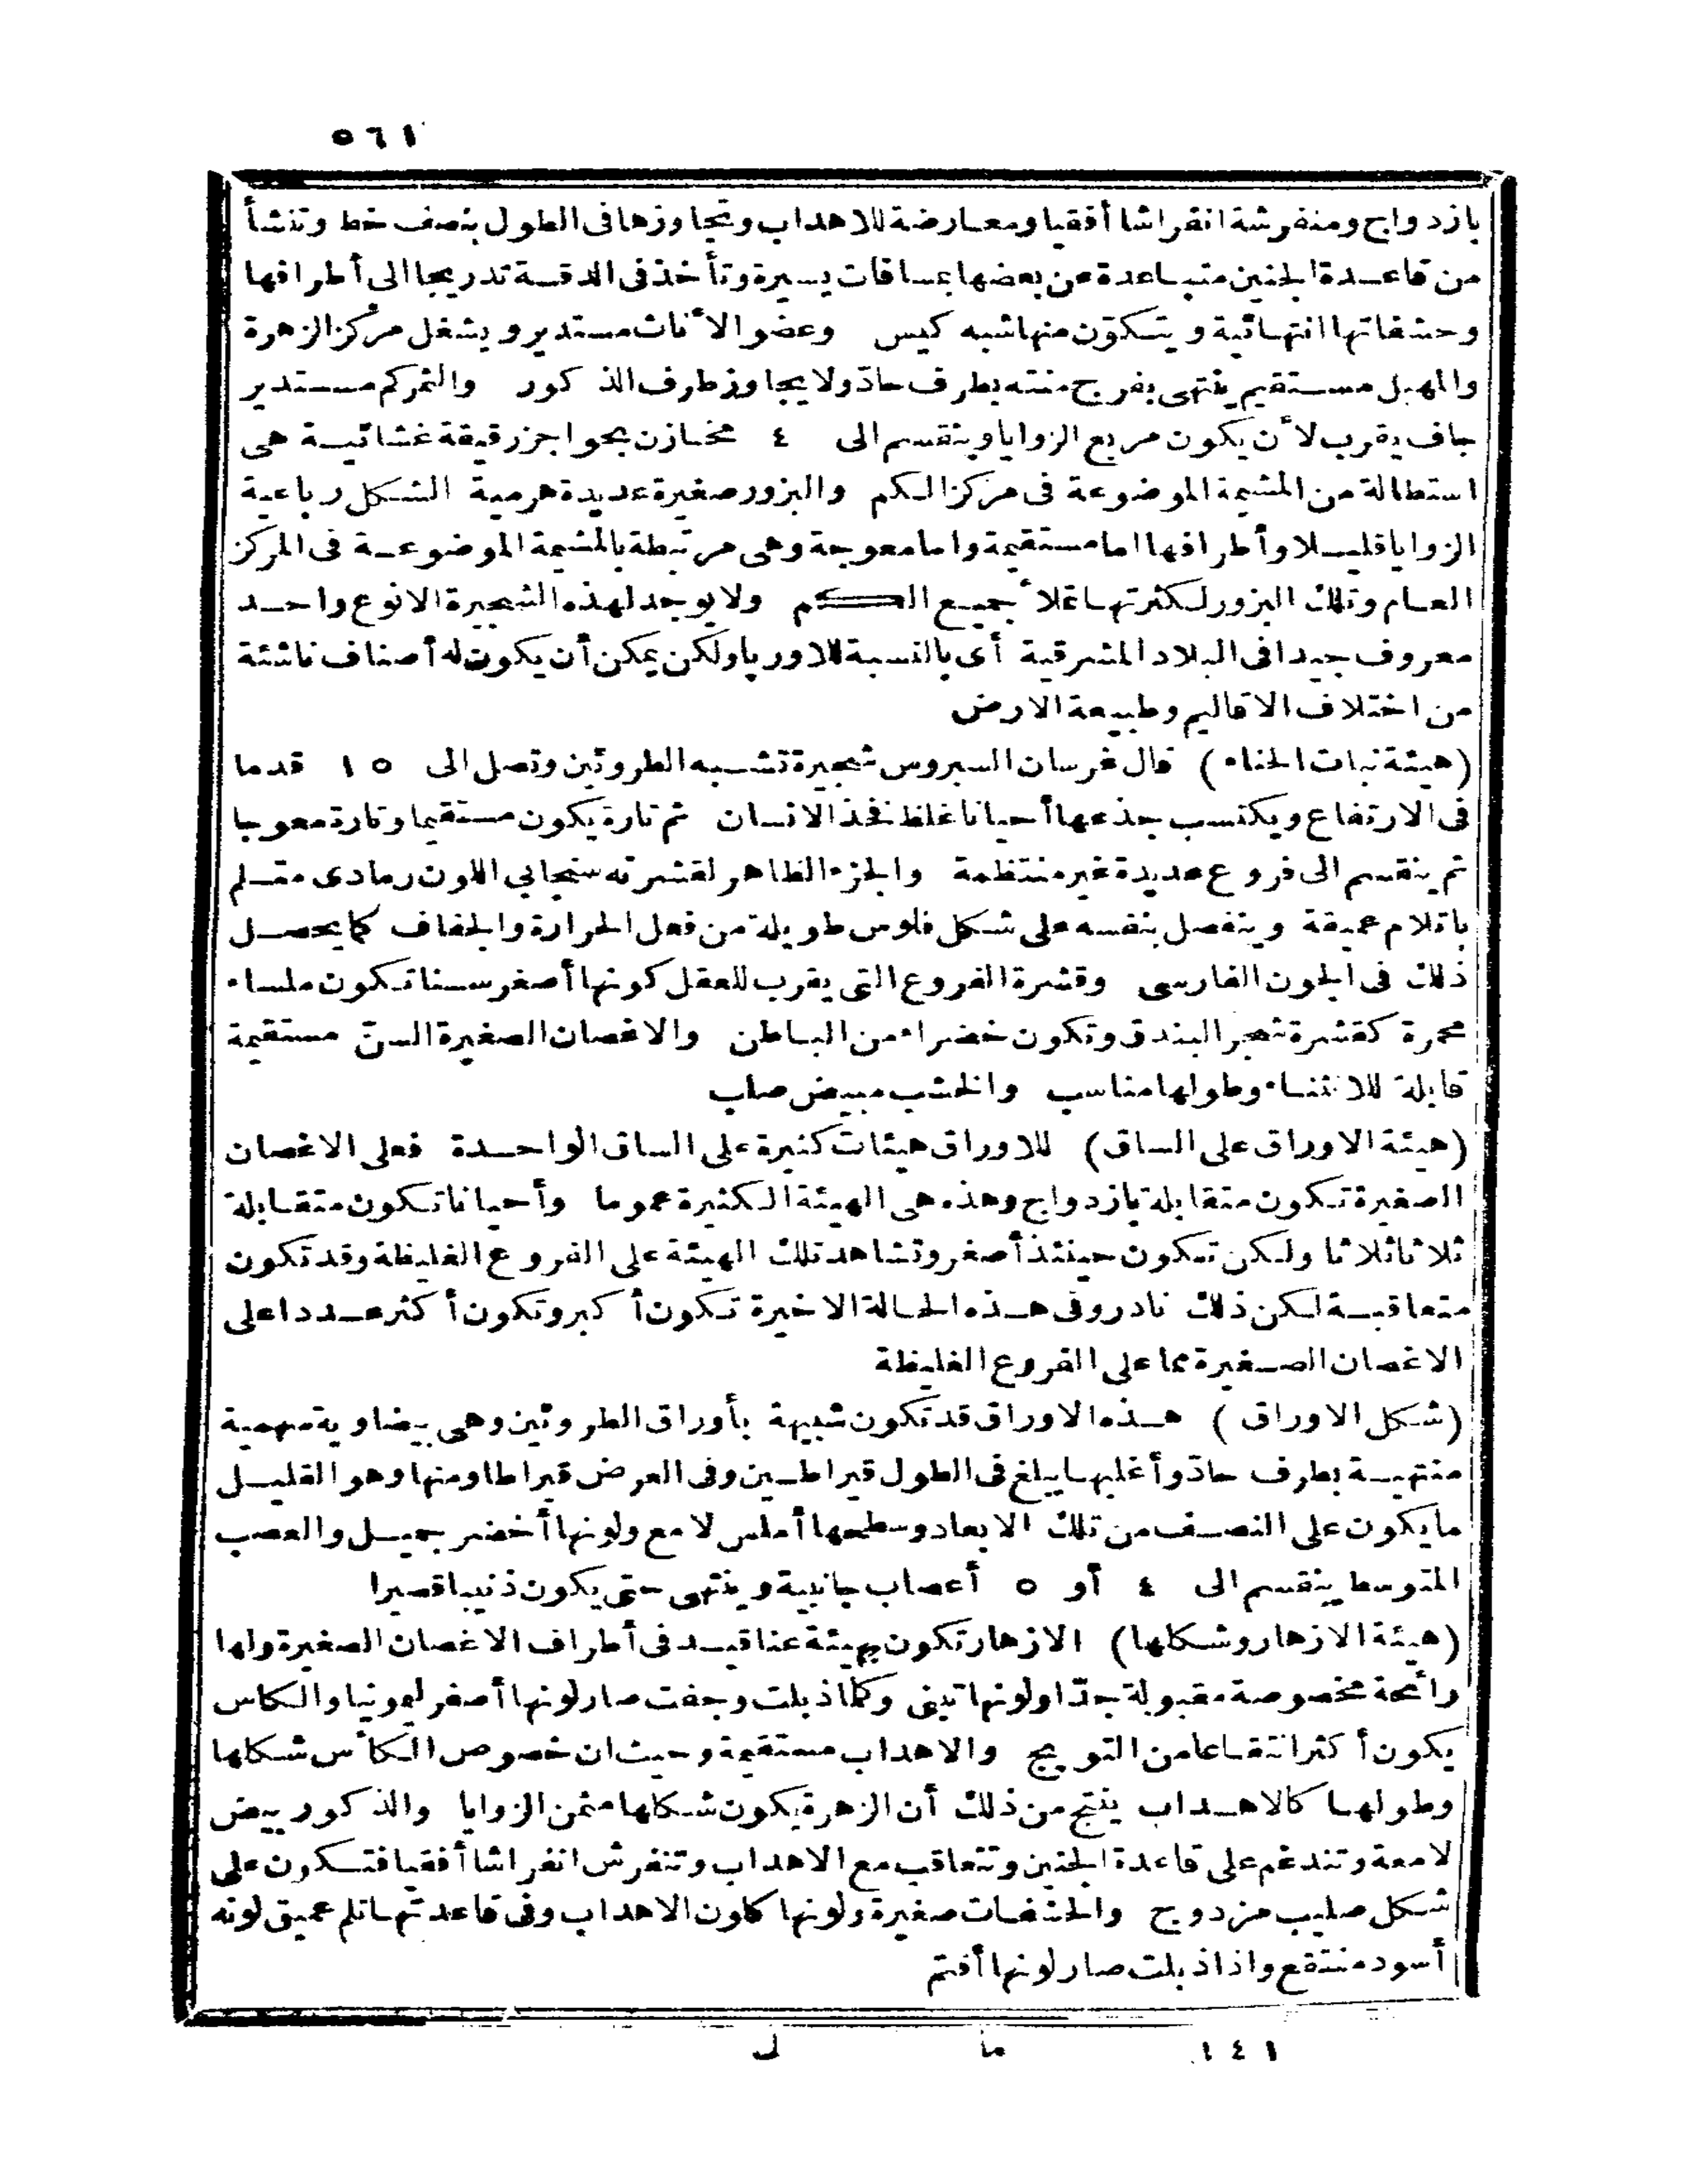 ٥٦١
بازدواج ومنفرشة انفراشا أفقيا ومعارضة للاهداب وتجاوزها فى الطول بنصف خط وتنشأ
من قاعدة الجنين متباعدة عن بعضها بمسافات يسيرة وتأخذ فى الدقة تدريجا الى أطرافها
وحشفاتها انتهائية ويتكوّن منها شبه كيس وعضو الأناث مستدير ويشغل مركز الزهرة
والمهبل مستقيم ينتهى بفرج منته بطرف حادّ ولا يجاوز طرف الذكور والثمر كم مستدير
جاف يقرب لأن يكون مربع الزوايا وينقسم الى ٤ مخازن بحواجز رقيقة غشائية هى
استطالة من المشيمة الموضوعة فى مركز الكم والبزور صغيرة عديدة هرمية الشكل رباعية
الزوايا قليلا وأطرافها اما مستقيمة واما معوجة وهى مرتبطة بالمشيمة الموضوعة فى المركز
العام وتلك البزور لكثرتها تملأ جميع الكم ولا يوجد لهذه الشجيرة الا نوع واحد
معروف جيدا فى البلاد المشرقية أى بالنسبة للاوربا ولكن يمكن أن يكون له أصناف ناشئة
من اختلاف الاقاليم وطبيعة الارض
(هيئة نبات الحناء) قال غرسان السبروس شجيرة تشبه الطروئين وتصل الى ١٥ قدما
فى الارتفاع ويكتسب جذعها أحيانا غلظ فخذ الانسان ثم تارة يكون مستقيما وتارة معوجا
ثم ينقسم الى فروع عديدة غير منتظمة والجزء الظاهر لقشرته سنجابي اللون رمادى مقلم
باتلام عميقة وينفصل بنفسه على شكل فلوس طويلة من فعل الحرارة والجفاف كما يحصل
ذلك فى الجون الفارسى وقشرة الفروع التى يقرب للعقل كونها أصغر سنا تكون ملساء
محمرة كقشرة شجر البندق وتكون خضراء من الباطن والاغصان الصغيرة السنّ مستقيمة
قابلة للانثناء وطولها مناسب والخشب مبيض صلب
(هيئة الاوراق على الساق) للاوراق هيئات كثيرة على الساق الواحدة فعلى الاغصان
الصغيرة تكون متقابلة بازدواج وهذه هى الهيئة الكثيرة عموما وأحيانا تكون متقابلة
ثلاثا ثلاثا ولكن تكون حينئذ أصغر وتشاهد تلك الهيئة على الفروع الغليظة وقد تكون
متعاقبة لكن ذلك نادر وفى هذه الحالة الاخيرة تكون أكبر وتكون أكثر عددا على
الاغصان الصغيرة مما على الفروع الغليظة
(شكل الاوراق) هذه الاوراق قد تكون شبيهة بأوراق الطروئين وهى بيضاوية سهمية
منتهية بطرف حادّ وأغلبها يبلغ فى الطول قيراطين وفى العرض قيراطا ومنها وهو القليل
ما يكون على النصف من تلك الابعاد وسطحها أملس لامع ولونها أخضر جميل والعصب
المتوسط ينقسم الى ٤ أو ٥ أعصاب جانبية وينتهى حتى يكون ذنيبا قصيرا
(هيئة الازهار وشكلها) الازهار تكون بهيئة عناقيد فى أطراف الاغصان الصغيرة ولها
رائحة مخصوصة مقبولة جدّا ولونها تبنى وكلما ذبلت وجفت صار لونها أصفر ليمونيا والكاس
يكون أكثر انتقاعا من التويج والاهداب مستقيمة وحيث ان خصوص الكأس شكلها
وطولها كالاهداب ينتج من ذلك أن الزهرة يكون شكلها مثمن الزوايا والذكور بيض
لامعة وتندغم على قاعدة الجنين وتتعاقب مع الاهداب وتنفرش انفراشا أفقيا فتكون على
شكل صليب مزدوج والحشفات صغيرة ولونها كلون الاهداب وفى قاعدتها تلم عميق لونه
أسود منتقع واذا ذبلت صار لونها أقتم
١٤١ ما ل